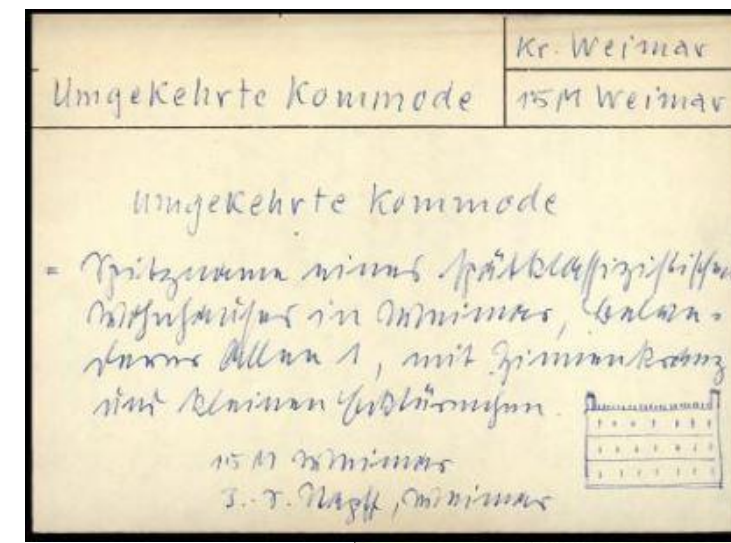 Kr. Weimar
Umgekehrte Kommode
15M Weimar
Umgekehrte Kommode
= Spitzname eines spätklassizistischen
Wohnhauses in Weimar, Belve-
derer Allee 1, mit Zinnenkranz
und kleinen Ecktürmchen.
15 M Weimar
Weimar